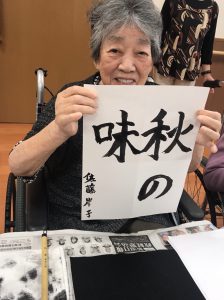 秋の
味
佐藤岸子